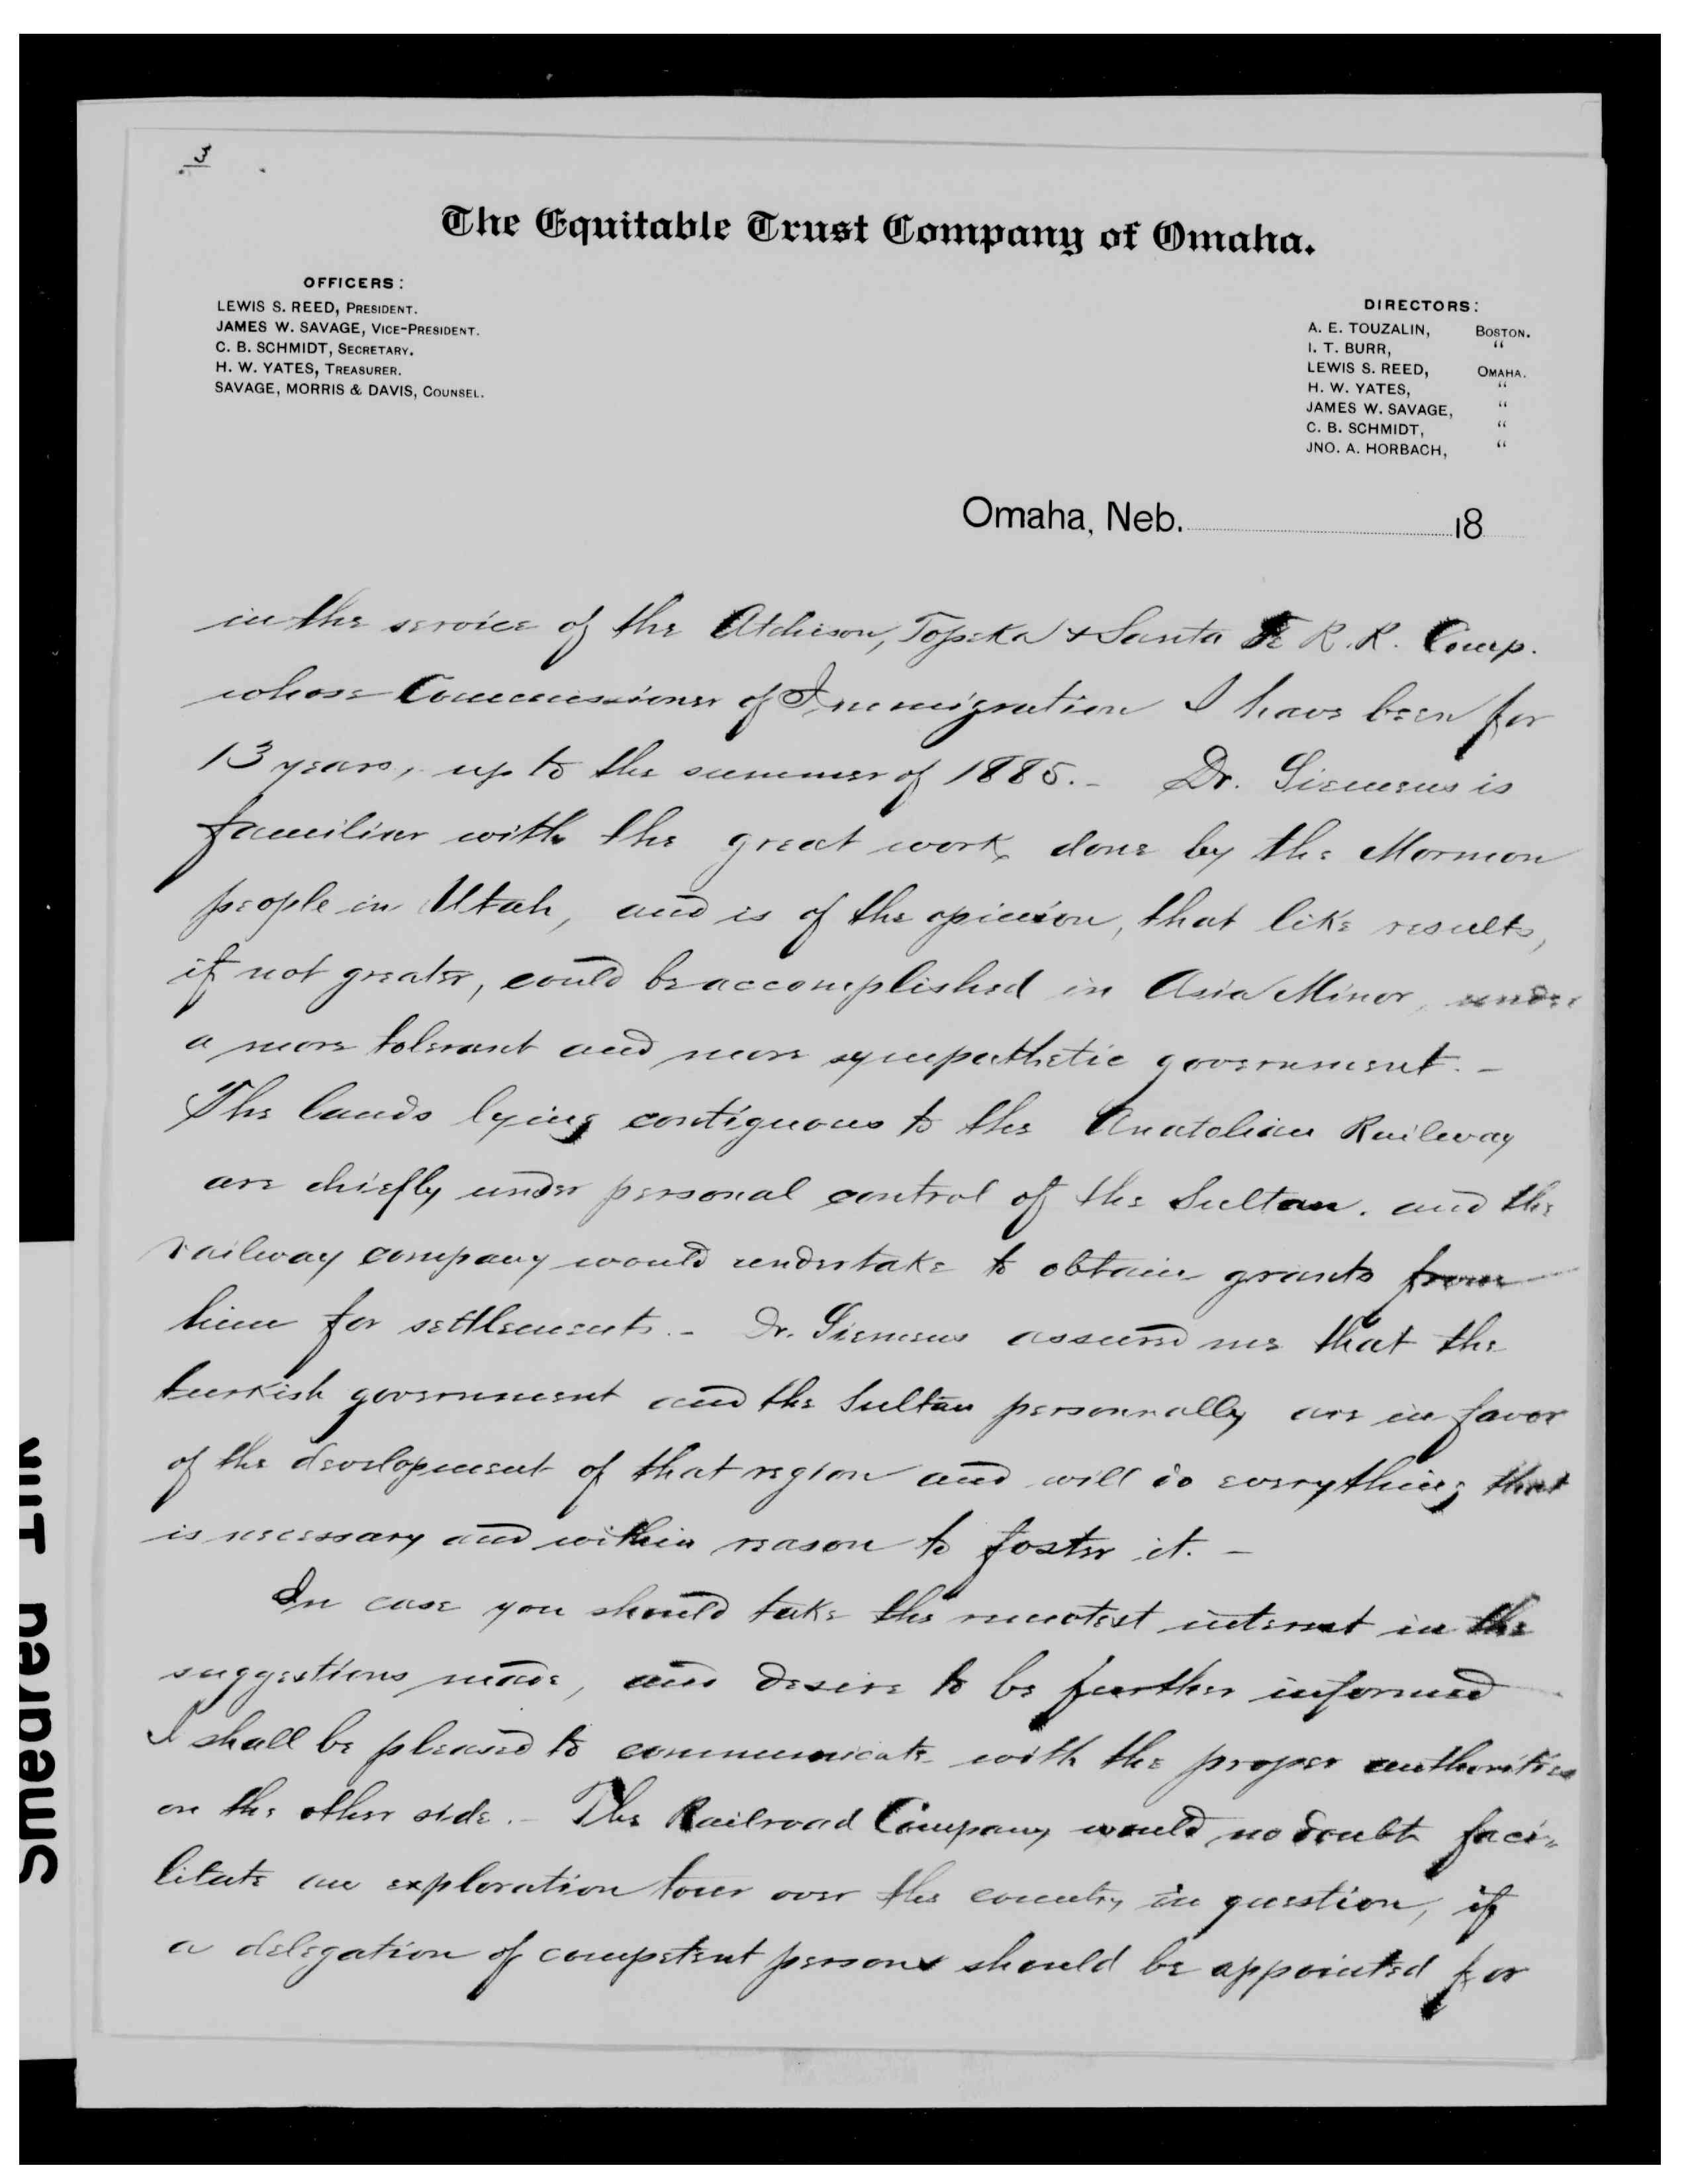 3
The Equitable Trust Company of Omaha.
OFFICERS:
LEWIS S. REED, PRESIDENT.
JAMES W. SAVAGE, VICE-PRESIDENT.
C. B. SCHMIDT, SECRETARY.
H. W. YATES, TREASURER.
SAVAGE, MORRIS & DAVIS, COUNSEL.
DIRECTORS:
A. E. TOUZALIN, BOSTON.
I. T. BURR, "
LEWIS S. REED, OMAHA.
H. W. YATES, "
JAMES W. SAVAGE, "
C. B. SCHMIDT, "
JNO. A. HORBACH, "
Omaha, Neb. 18
in the service of the Atchison, Topeka & Santa Fe R. R. Comp.
whose Commissioner of Immigration I have been for
13 years, up to the summer of 1885. - Dr. Siemens is
familiar with the great work done by the Mormon
people in Utah, and is of the opinion, that like results,
if not greater, could be accomplished in Asia Minor, under
a more tolerant and more sympathetic government. -
The lands lying contiguous to the Anatolian Railway
are chiefly under personal control of the Sultan. and the
railway company would undertake to obtain grants from
him for settlements. - Dr. Siemens assured me that the
turkish government and the Sultan personnally are in favor
of the development of that region and will do everything that
is necessary and within reason to foster it. -
In case you should take the remotest interest in the
suggestions made, and desire to be further informed
I shall be pleased to communicate with the proper authorities
on the other side. - The Railroad Company would no doubt faci-
litate an exploration tour over the country in question, if
a delegation of competent persons should be appointed for
Smedred